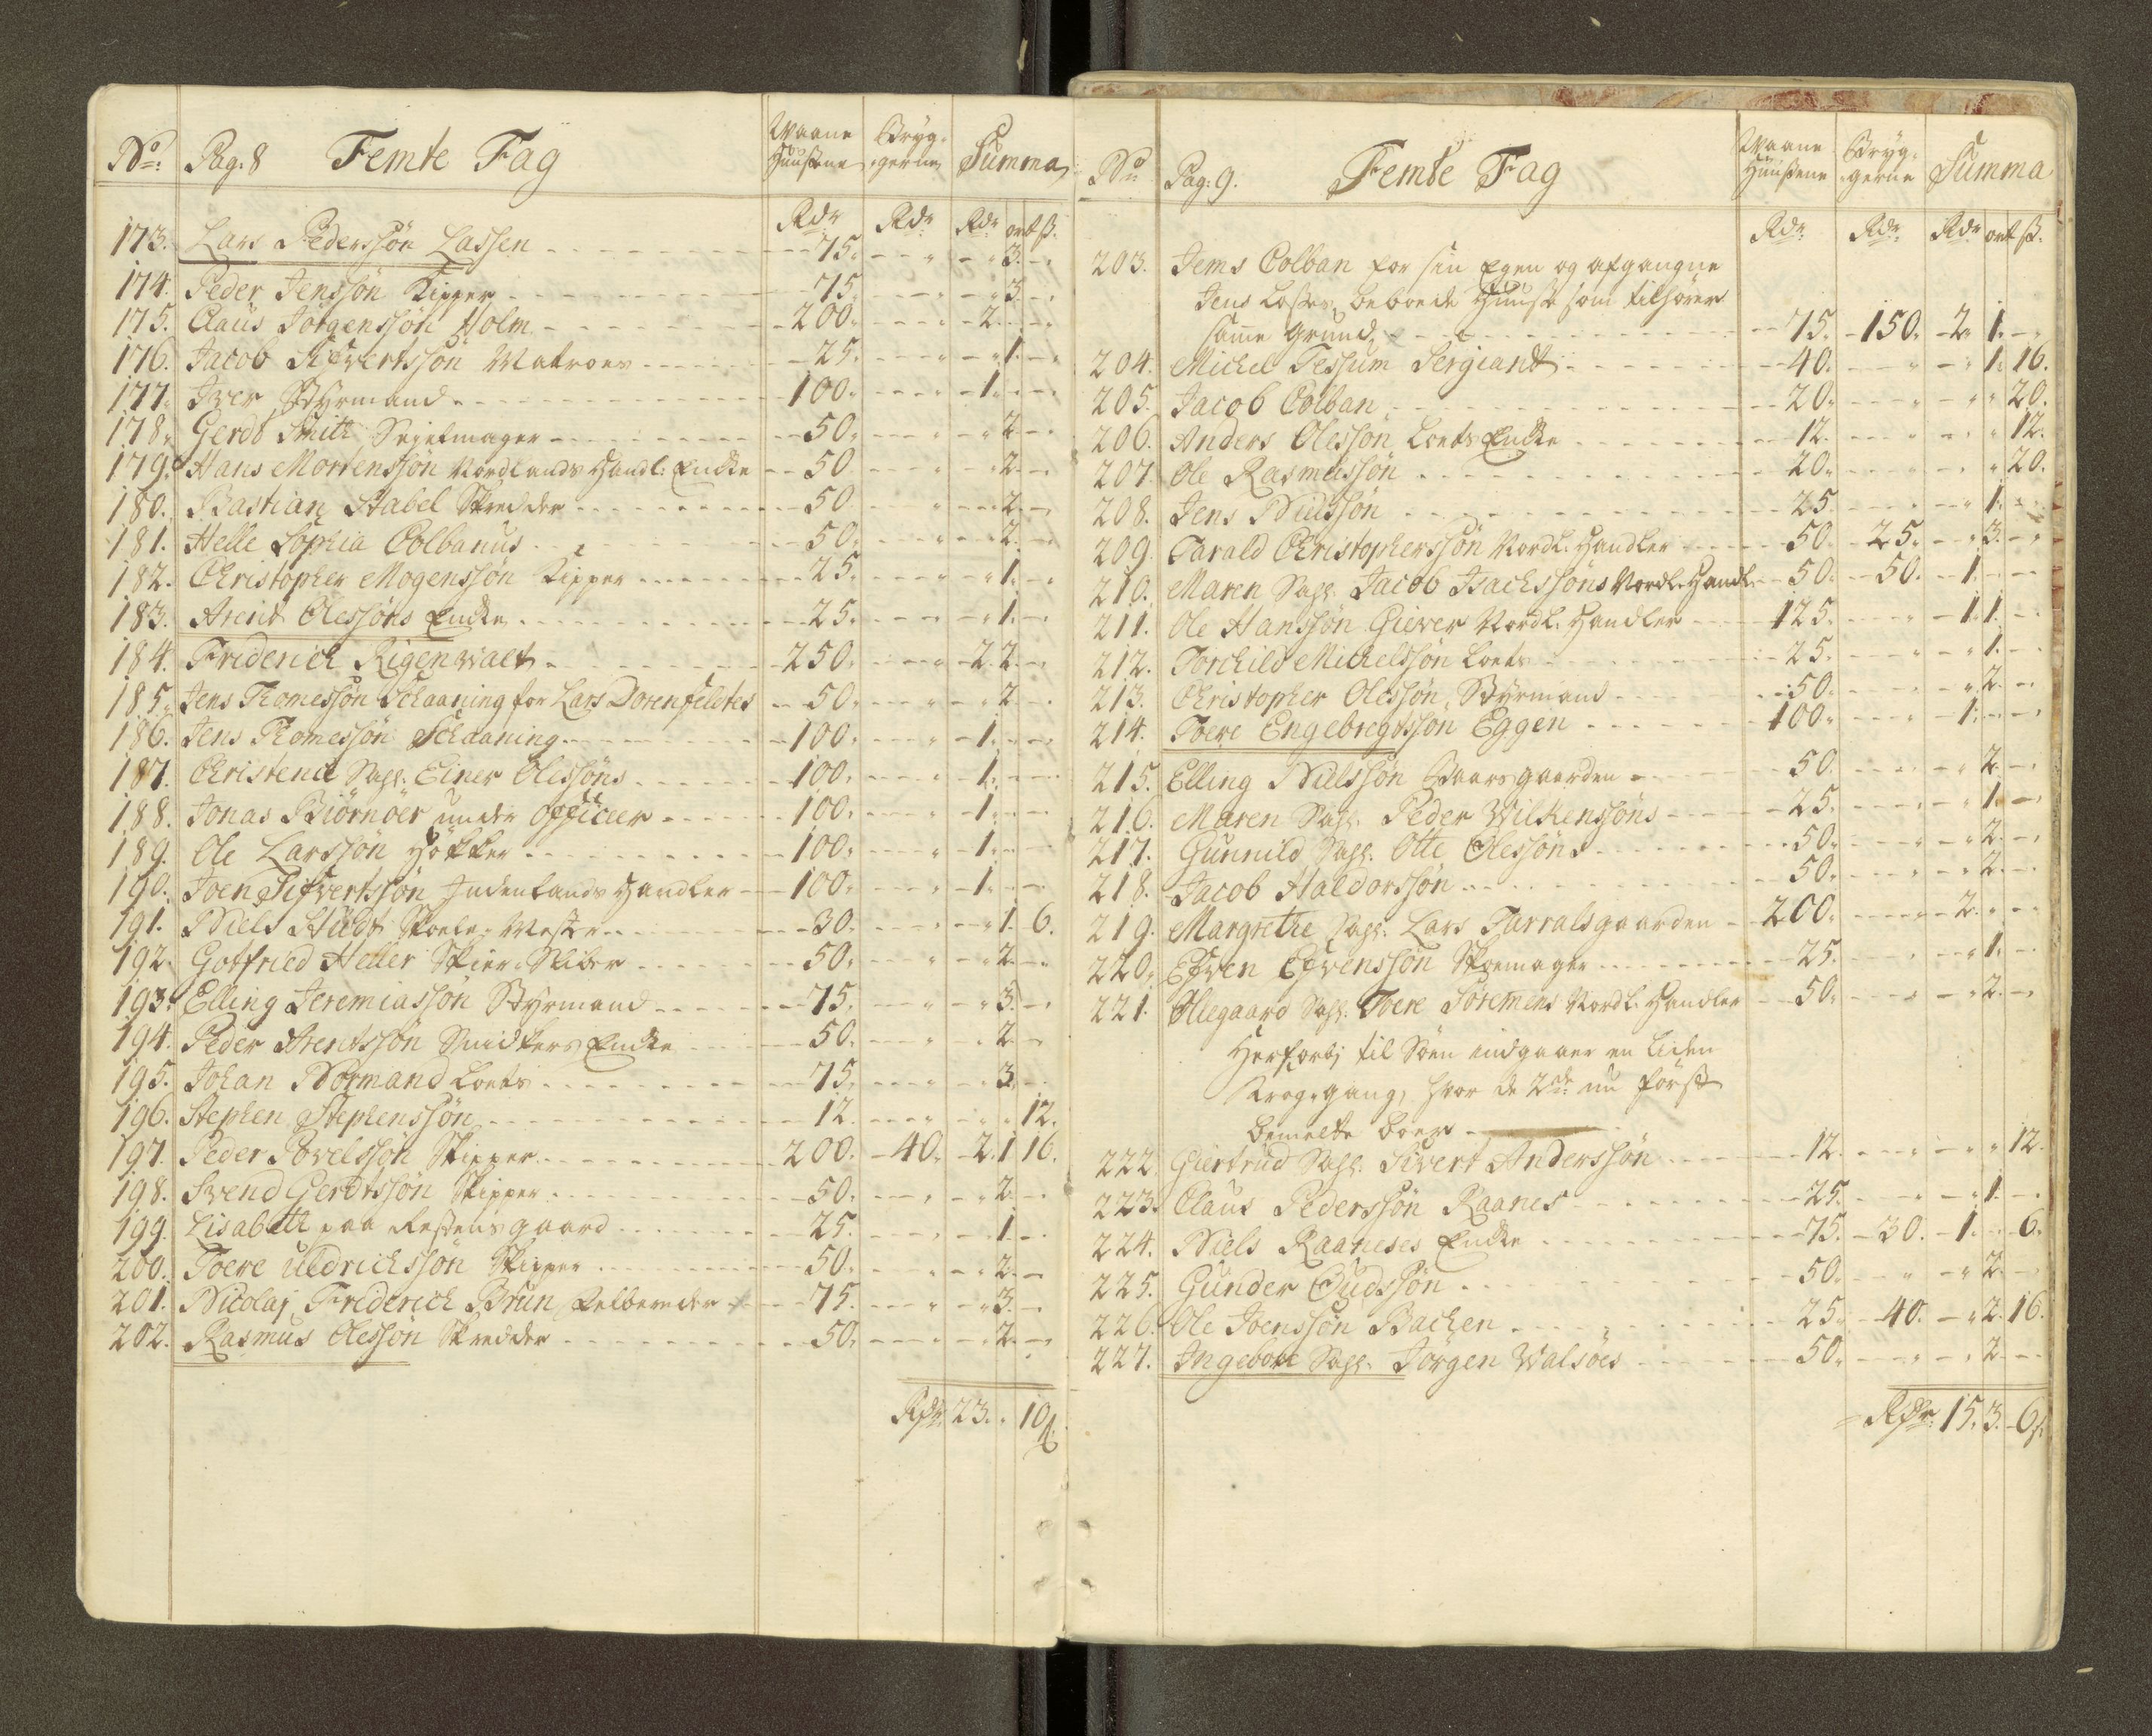 No: Pag: 8 Femte Fag Waane Huußene Bryg-gerne Summa
Rdr Rdr Rdr ort ß.
173. Lars Pederssön Lassen 75. " 3.
174. Peder Jenssön Kipper 75. " 3.
175. Claus Jörgenssön Holm 200. 2.
176. Jacob Sifvertssön Matroes 25. " 1.
177. Iver Styrmand 100. 1.
178. Gerdt Smith Sejelmager 50. " 2.
179. Hans Mortenssön Nordlands Handl: Encke 50. " 2.
180. Bastian Stabel Skredder 50 " 2.
181. Helle Sophia Colbanus 50. " 2.
182. Christopher Mogenssön Kipper 25. " 1.
183. Arent Olessöns Encke 25. " 1.
184. Friderich Rigenwalt 250. 2. 2.
185. Jens Thomessön Schaaning for Lars Dorenfeldtes 50. " 2.
186. Jens Thomessön Schaaning 100. 1.
187. Christence Sahl. Einer Olessöns 100. 1.
188. Jonas Biörnöer under Officeer 100. 1.
189. Ole Larssön Höcker 100. 1.
190. Joen Sifvertssön Indenlands Handler 100. 1.
191. Niels Stüdt Skole-Mester 30. " 1. 6.
192. Gotfried Heller Skier-Sliber 50. " 2.
193. Elling Jeremiassön Styrmand 75. " 3.
194. Peder Arentssön Snidkers Encke 50. " 2.
195. Johan Normand Loets 75. 3.
196. Stephen Stephenssön 12. " 12.
197. Peder Povelssön Skipper 200. 40. 2. 1 16.
198. Svend Gerdtssön Skipper 50. " 2.
199. Lisabeth paa Restens gaard 25. 1.
200. Toere Uldrichssön Skipper 50. " 2.
201. Nicolaj Friderich Brun Felbereder 75. " 3.
202. Rasmus Olessön Skredder 50. " 2.
Rdr 23. " 10ß.
No Pag: 9. Femte Fag Waane Huußene Bryg-gerne Summa
Rdr Rdr Rdr ort ß.
203. Jems Colban for sin Egen og afgangne
Jens Losses beboede Huuse som tilhörer
samme Grund 75. 150. 2. 1.
204. Michel Tessum Sergiant 40. " 1. 16.
205. Jacob Colban 20. " " 20.
206. Anders Olessön Loets Encke 12. " 12.
207. Ole Rasmussön 20. " 20.
208. Jens Nielssön 25. " 1.
209. Tarald Christopherssön Nordl. Handler 50. 25. " 3.
210. Maren Sahl. Jacob Isachssöns Nordl. Handl. 50. 50. 1.
211. Ole Hanssön Giever Nordl. Handler 125. 1. 1.
212. Torchild Michelssön Loets 25. " 1.
213. Christopher Olessön, Styrmand 50. " 2.
214. Toere Engebregtsson Eggen 100. 1.
215. Elling Nielssön Waarsgaarden 50. " 2.
216. Maren Sahl. Peder Wilkenssöns 25. " 1.
217. Gunnild Sahl. Otte Olessöns 50. " 2.
218. Jacob Haldorssön 50. " 2.
219. Margrethe Sahl. Lars Tarralsgaarden 200. 2.
220. Efven Efvenssön Skoemager 25. " 1.
221. Olegaard Sahl. Toere Söremens Nordl. Handler 50. " 2.
Herforbj til Söen indgaaer en liden
Krog-gang, hvor de 2de nu först
bemelte boer
222. Giertrud Sahl. Sivert Anderssön 12. " " 12.
223. Claus Pederssön Raanes 25. " 1.
224. Niels Raaneses Encke 75. 30. 1. 6.
225. Gunder Gudssön 50. " 2.
226. Ole Joenssön Bachen 25. 40. " 2. 16.
227. Ingebore Sahl. Jörgen Walsöes 50. " 2.
Rdr 15. 3. 6ß.